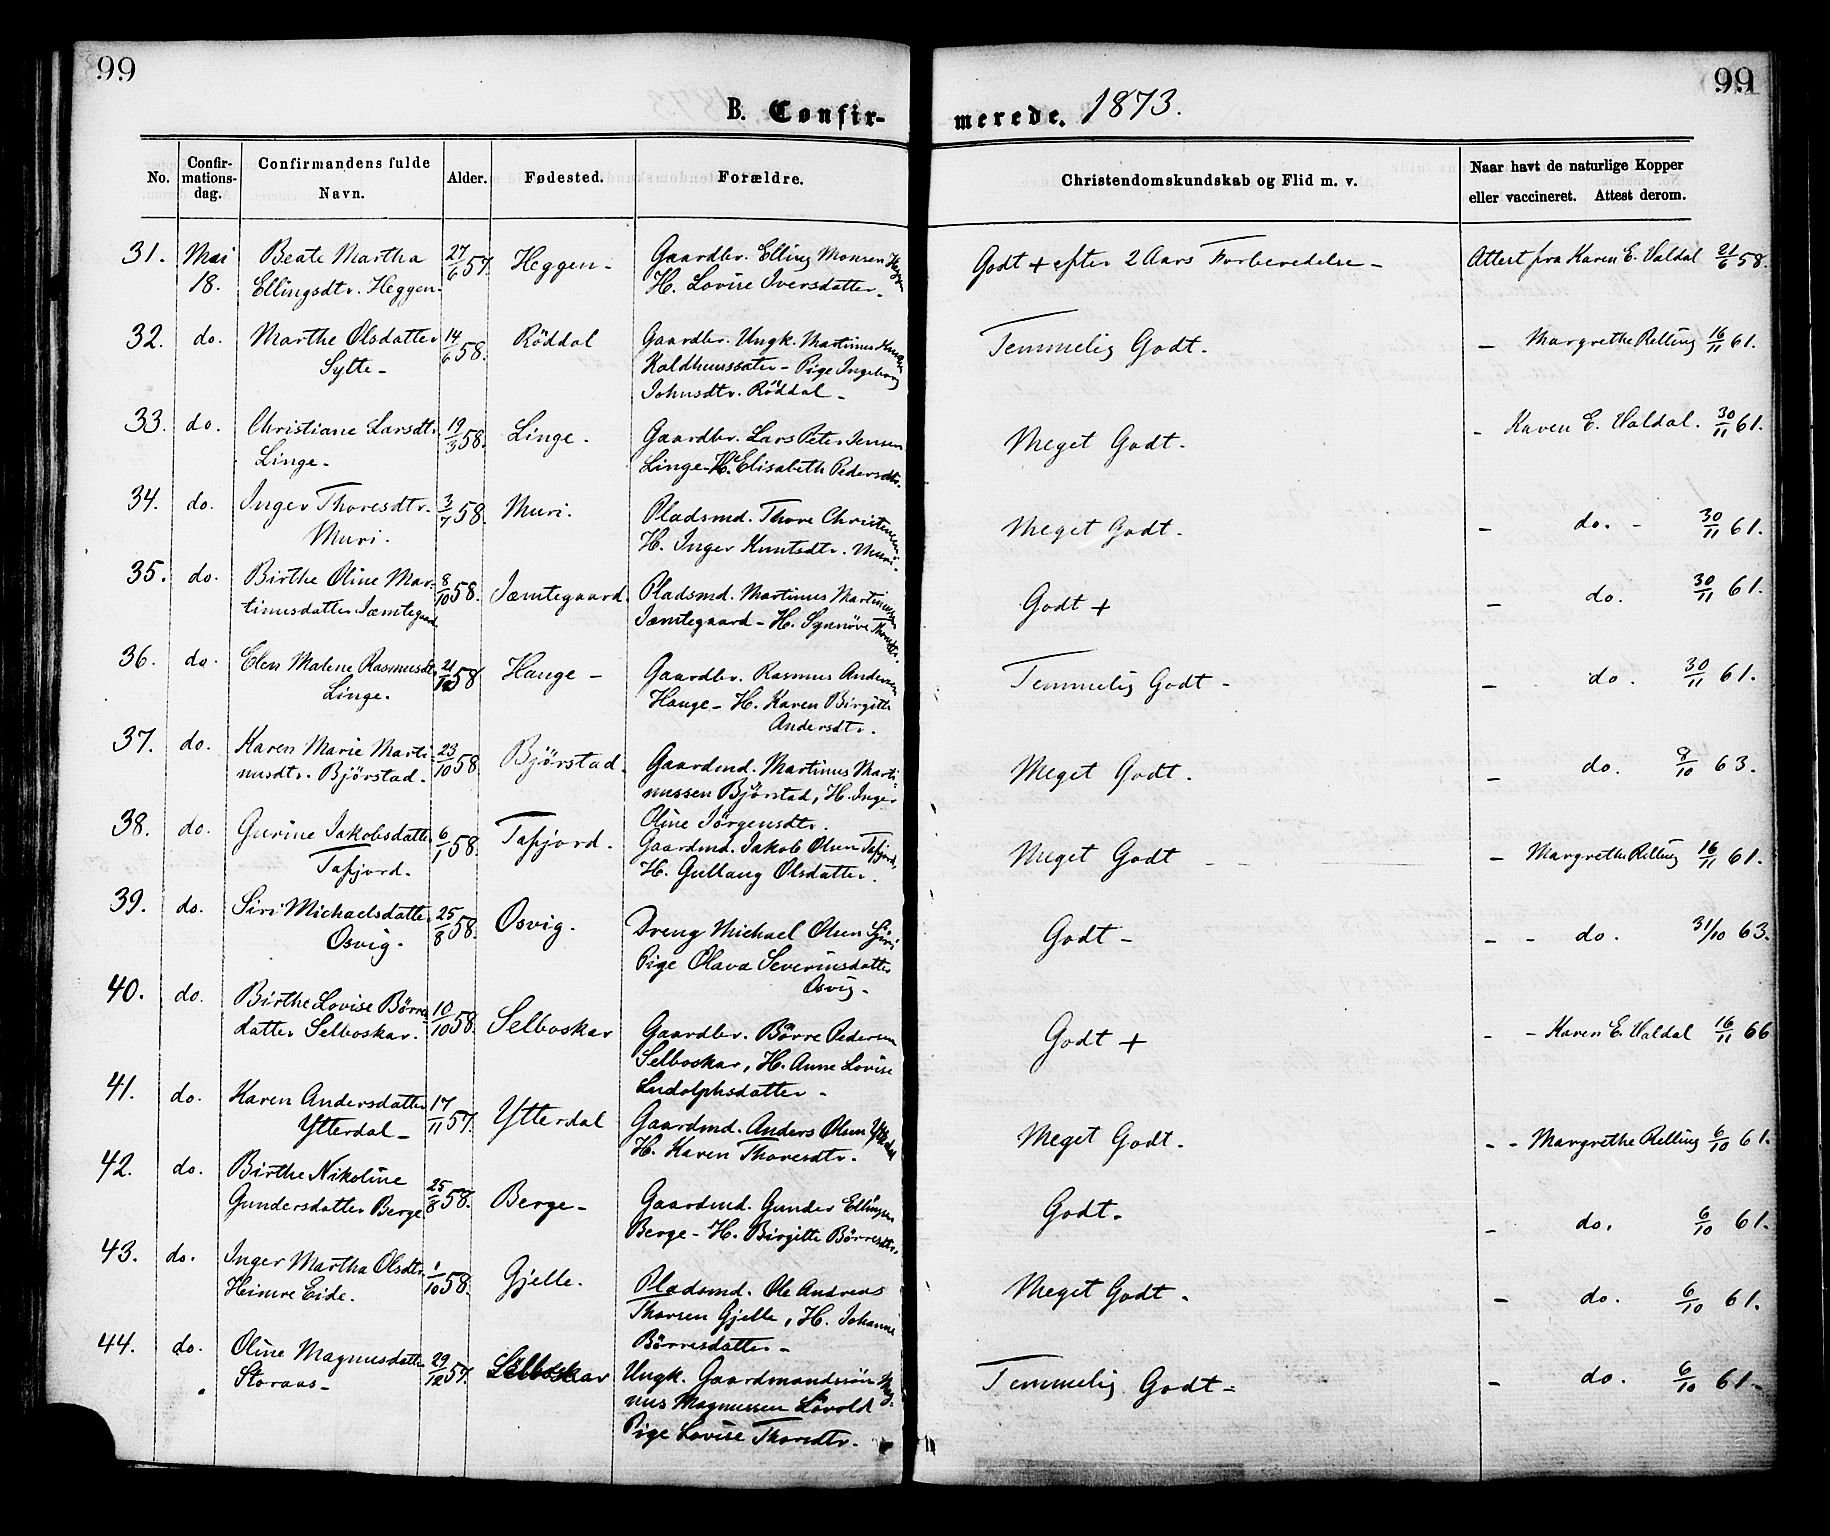 99
99
B. Confir-
merede. 1873.
No.
Confir-
mations-
dag.
Confirmandens fulde
Navn.
Alder.
Fødested.
Forældre.
Christendomskundskab og Flid m. v.
Naar havt de naturlige Kopper
eller vaccineret. Attest derom.
31. Mai Beate Martha 27/6 57. Heggen - Gaardbr. Elling Monsen Heggen Godt + efter 2 Aars Forberedelse - Attest fra Karen E. Valdal 21/6 58.
18. Ellingsdtr. Heggen. H. Lovise Iversdatter.
32. do. Marthe Olsdatter 14/6 58. Röddal Gaardbr. Ungk. Martinus Temmelig Godt. - Margrethe Relling 16/11 61.
Sylte - Koldhuussæter - Pige Ingeborg
Johnsdtr. Röddal -
33. do. Christiane Larsdtr. 19/3 58. Linge - Gaardbr. Lars Peter Jensen Meget Godt. - Karen E. Valdal. 30/11 61.
Linge - Linge - H. Elisabeth Pedersdtr.
34. do. Inger Thoresdtr. 3/7 58. Muri. Pladsmd. Thore Christensen Meget Godt. - do. - 30/11 61.
Muri. H. Inger Knutsdtr. Muri.
35. do. Birthe Oline Mar- 8/10 58. Jæmtegaard. Pladsmd. Martinus Martinussen Godt + - do. 30/11 61.
tinusdatter Jæmtegaard Jæmtegaard - H. Synnöve Thoresdtr.
36. do. Elen Malene Rasmusdtr. 21/12 58 Hauge - Gaardbr. Rasmus Andersen Temmelig Godt - - do. 30/11 61.
Linge. Hauge - H. Karen Birgitte
Andersdtr.
37. do. Karen Marie Marti- 23/10 58 Bjørstad. Gaardmd. Martinus Marti- Meget Godt. - do. 9/10 63.
nusdtr. Bjørstad. nussen Bjørstad, H. Inger
Oline Jörgensdtr.
38. do. Gurine Jakobsdatter 6/1 58. Tafjord. Gaardmd. Jakob Olsen Tafjord, Meget Godt - Margrethe Relling 16/11 61.
Tafjord. H. Gullaug Olsdatter.
39. do. Siri Michaelsdatter 25/8 58. Osvig. Dreng Michael Olsen Godt - - - do. 31/10 63.
Osvig. Pige Olava Severinsdatter
Osvig -
40. do. Birthe Lovise Börre- 10/10 58. Selboskar Gaardbr. Börre Pedersen Godt + - - Karen E. Valdal 16/11 66
datter Selboskar. Selboskar, H. Anne Lovise
Ludolphsdatter -
41. do. Karen Andersdatter 17/11 57. Ytterdal Gaardmd. Anders Olsen Ytterdal Meget Godt. - - Margrethe Relling 6/10 61.
Ytterdal - H. Karen Thoresdtr.
42. do. Birthe Nikoline 25/8 58. Berge - Gaardmd. Gunder Ellingsen Godt. - do. 6/10 61.
Gundersdatter Berge Berge - H. Birgitte Börresdtr.
43. do. Inger Martha Olsdtr. 1/10 58. Gjelle. Pladsmd. Ole Andreas Meget Godt - - do. 6/10 61.
Heimre Eide. Thorsen Gjelle, H. Johanne
Börresdatter -
44. do. Oline Magnusdatter 29/12 57. Selboskar Ungk. Gaardmandssön Mag- Temmelig Godt - - do. 6/10 61 -
Storaas - nus Magnussen Lövold
Pige Lovise Thoresdtr.